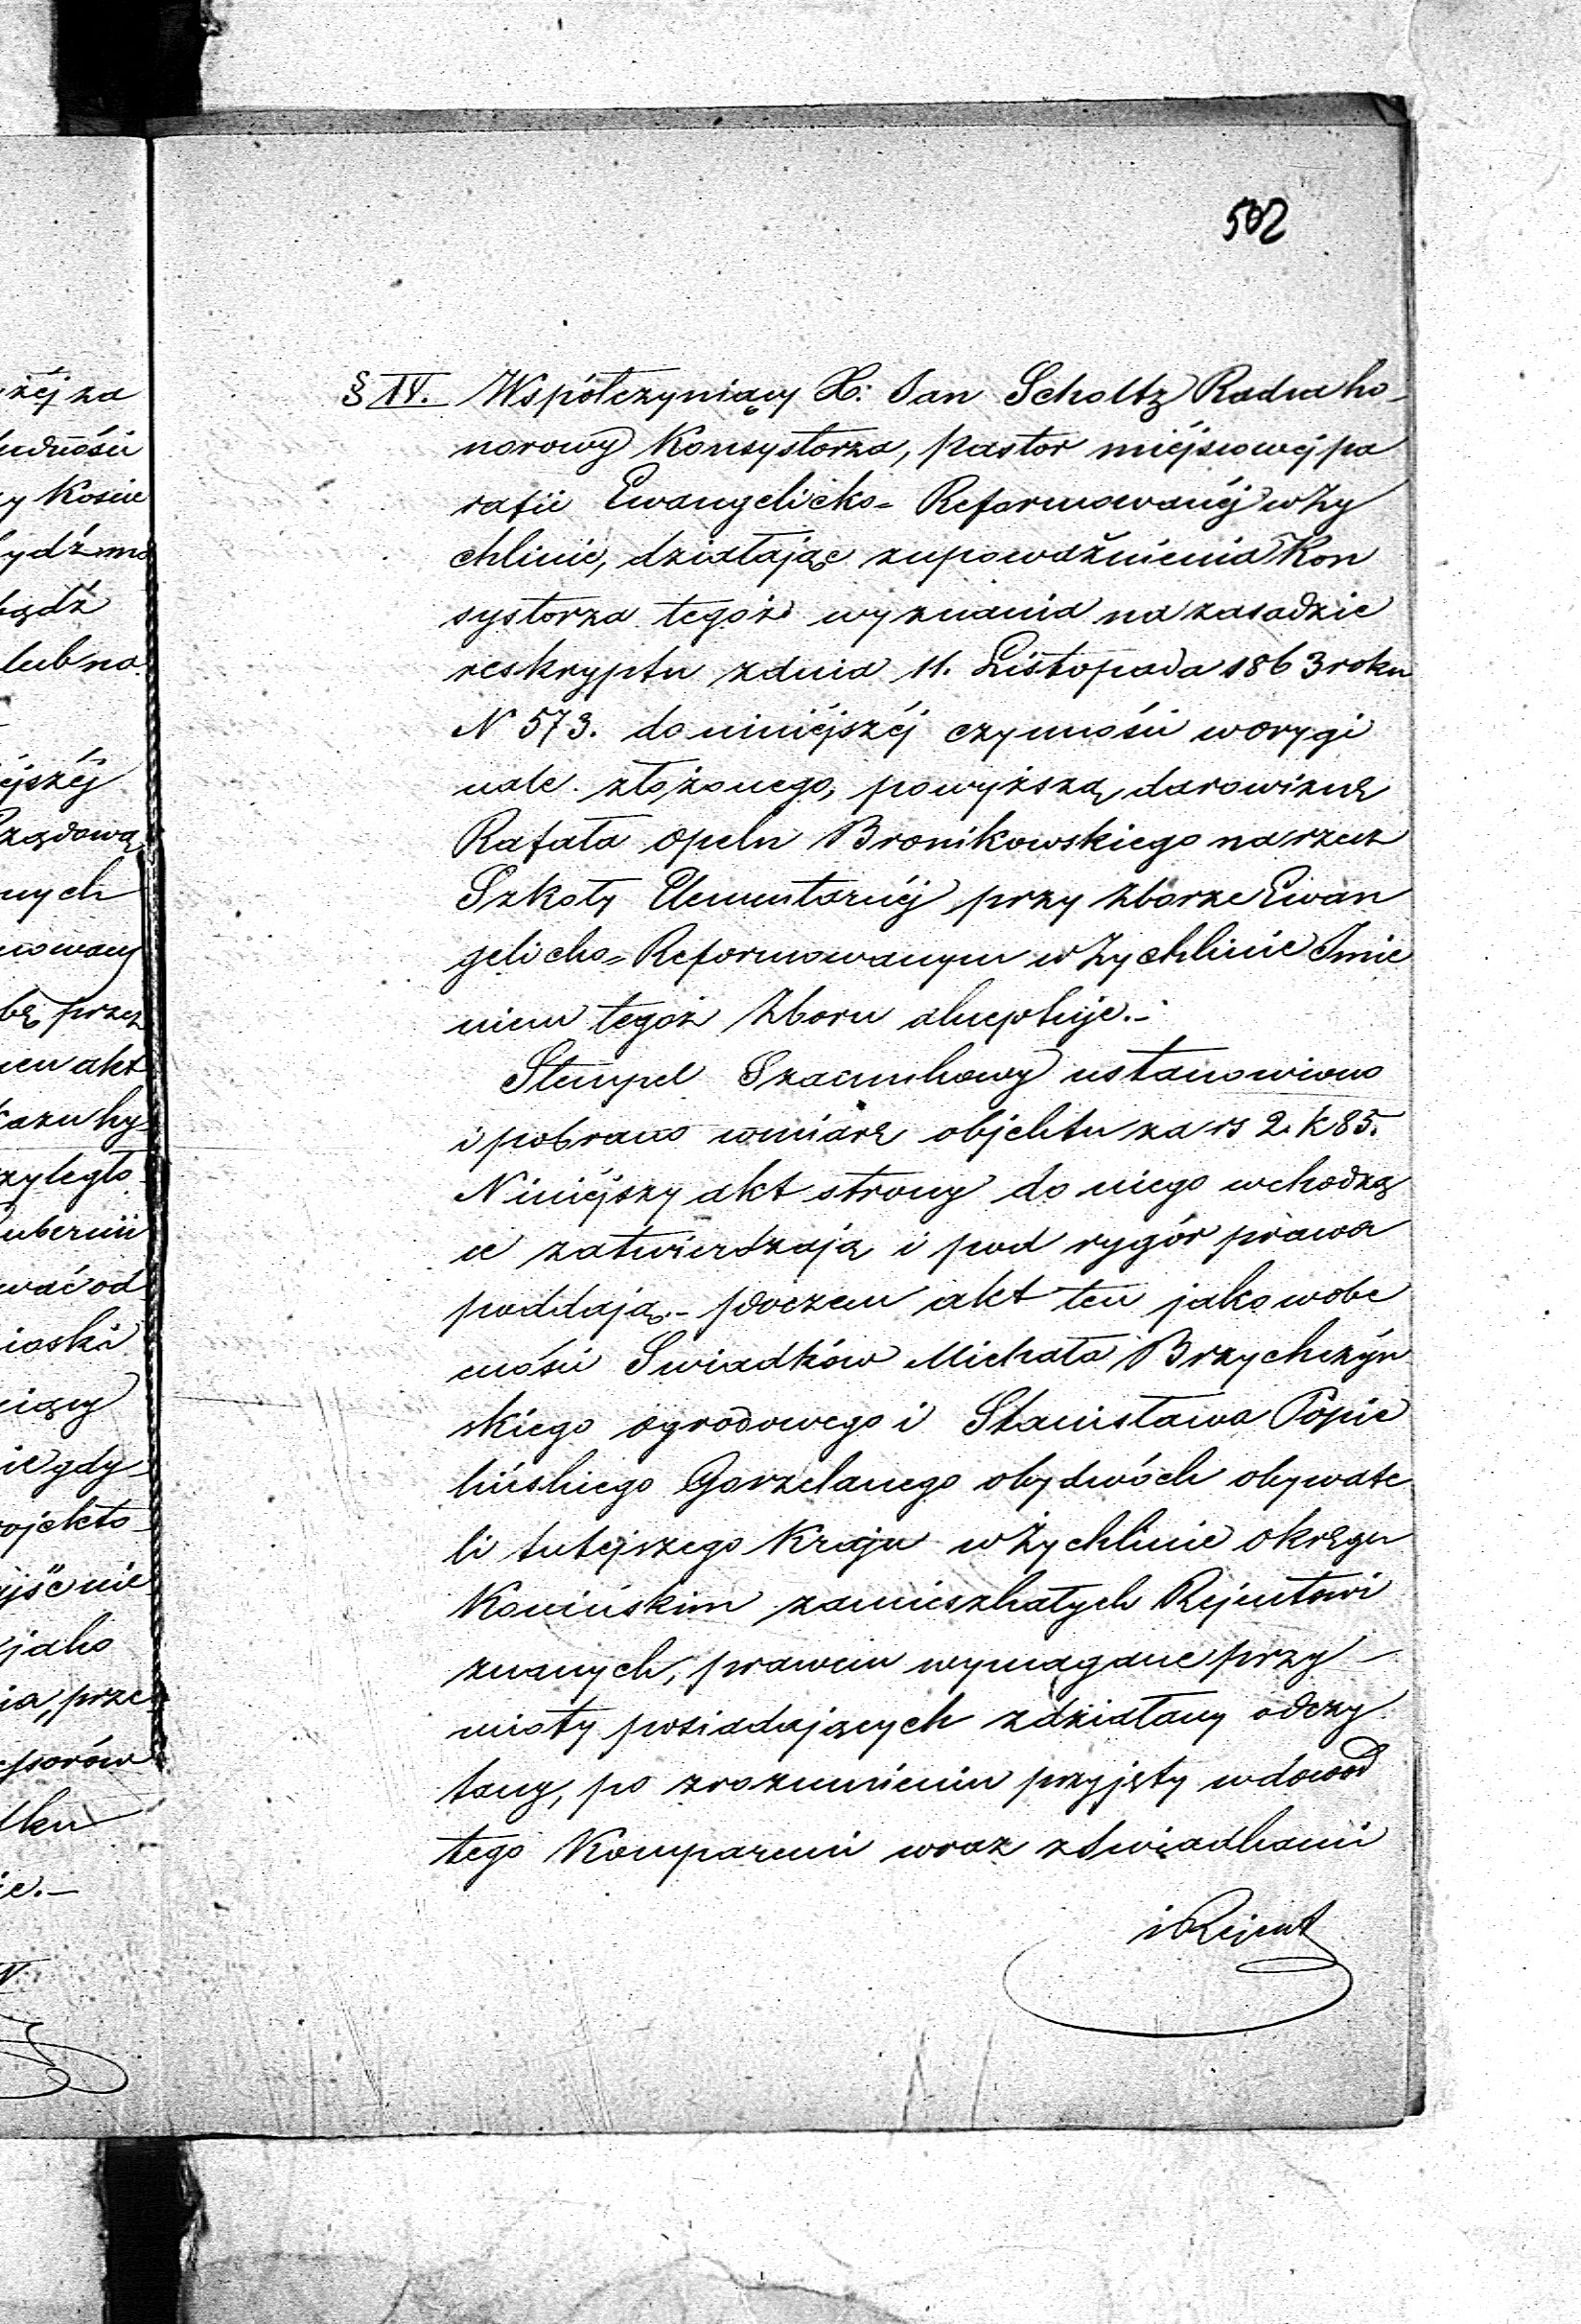 502
§ IV. Współczyniący X: Jan Scholtz Radca ho-
norowy Konsystorza, Pastor miéjscowéj pa
rafii Ewangelicko=Reformowanéj w Ży
chlinie, działając z upoważnienia Kon
systorza tegoż wyznania na zasadzie
reskryptu z dnia 11. Listopada 1863 roku
N 573. do niniéjszéj czynności w orygi
nale złożonego, powyższą darowiznę
Rafała Opeln Bronikowskiego na rzecz
Szkoły Elementarnéj przy Zborze Ewan
gelicko=Reformowanym w Żychlinie Imie
niem tegoż Zboru akceptuje.-
Stempel Szacunkowy ustanowiono
i pobrano w miarę objektu za rs 2. k 85.
Niniéjszy akt strony do niego wchodzą
ce zatwierdzają i pod rygór prawa
poddają.- poczem akt ten jako w obe
cności Swiadków Michała Brzychczyń
skiego ogrodowego i Stanisława Popie
lińskiego Gorzelanego obydwóch obywate
li tutejszego Kraju w Żychlinie okręgu
Konińskim zamieszkałych Rejentowi
znanych, prawem wymagane przy-
mioty posiadających zdziałany odczy
tany, po zrozumieniu przyjęty w dowod
tego Komparenci wraz z Swiadkami
i Rejent
żéj za
ludności
y Kościo
bądź
lub na
éjszéj
nych
mowany
bę przez
akt
zyległo
ubernii
wać od
iąski
gdy
ojekto
jako
ia, prze
ssorów
ie.-